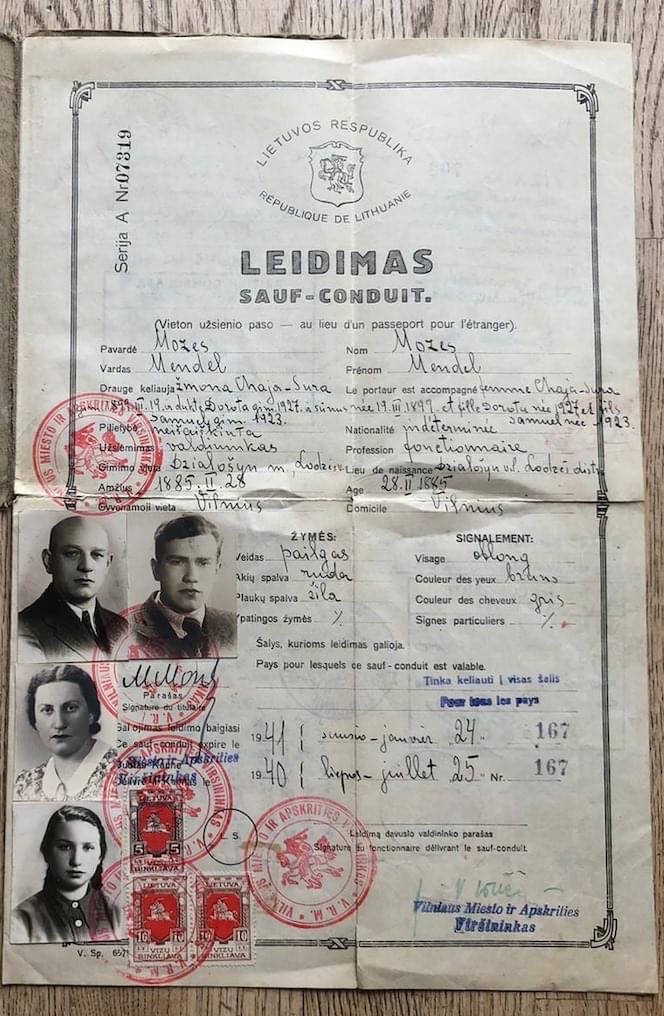 Serija A Nr 07319
LIETUVOS RESPUBLIKA
RÉPUBLIQUE DE LITHUANIE
LEIDIMAS
SAUF-CONDUIT.
(Vieton užsienio paso — au lieu d'un passeport pour l'étranger).
Pavardė Mozes Nom Mozes
Vardas Mendel Prénom Mendel
Drauge keliauja žmona Chaja-Sura Le porteur est accompagné femme Chaja-Sura
gim. 1899.III.19. ir duktė Dorota gim. 1927. ir sūnus née 19.III.1897. et fille Dorota née 1927 et fils
Samuel gim. 1923. Samuel né 1923.
Pilietybė neišaiškinta Nationalité indeterminée
Užsiėmimas valdininkas Profession fonctionnaire
Gimimo vieta Działošyn m., Lodzės Lieu de naissance Działošyn v. Lodzės distr.
Amžius 1885.II.28 Age 28.II.1885
Gyvenamoji vieta Vilnius Domicile Vilnius
ŽYMĖS: SIGNALEMENT:
Veidas pailgas Visage oblong
Akių spalva ruda Couleur des yeux bruns
Plaukų spalva žila Couleur des cheveux gris
Ypatingos žymės % Signes particuliers %
Šalys, kurioms leidimas galioja.
Pays pour lesquels ce sauf-conduit est valable.
Tinka keliauti į visas šalis
Pour tous les pays
Parašas
Signature du titulaire
Galiojimas leidimo baigiasi 1941 sausio-janvier 24 " 167
Ce sauf-conduit expire le
1940 liepos-juillet 25 " Nr. 167
Miesto ir Apskrities
Viršininkas
L. S.
Leidimą davusio valdininko parašas
Signature du fonctionnaire délivrant le sauf-conduit.
Vilniaus Miesto ir Apskrities
Viršininkas
VILNIAUS MIESTO IR APSKRITIES VIRŠININKAS
V. R. M.
LIETUVA
5 5
LIETUVA LIETUVA
10 10 10 10
VIZŲ VIZŲ
RINKLIAVA RINKLIAVA
V. Sp.